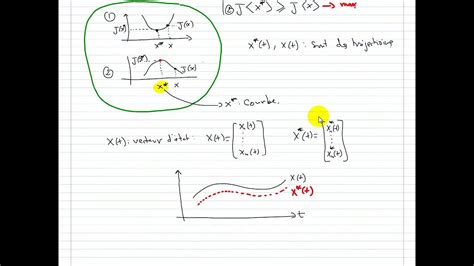 (1) J(x) J(x*) x* x
② J<x*> ⩾ J<x> → max
x*(t), x(t) : sont des trajectoires
(2) J(x*) J(x) x* x
→ x* : Courbe.
X(t) : vecteur d'état : X(t) = [x₁(t) ⋮ xₙ(t)] X*(t) = [x₁*(t) ⋮ xₙ*(t)]
X(t)
X*(t)
t